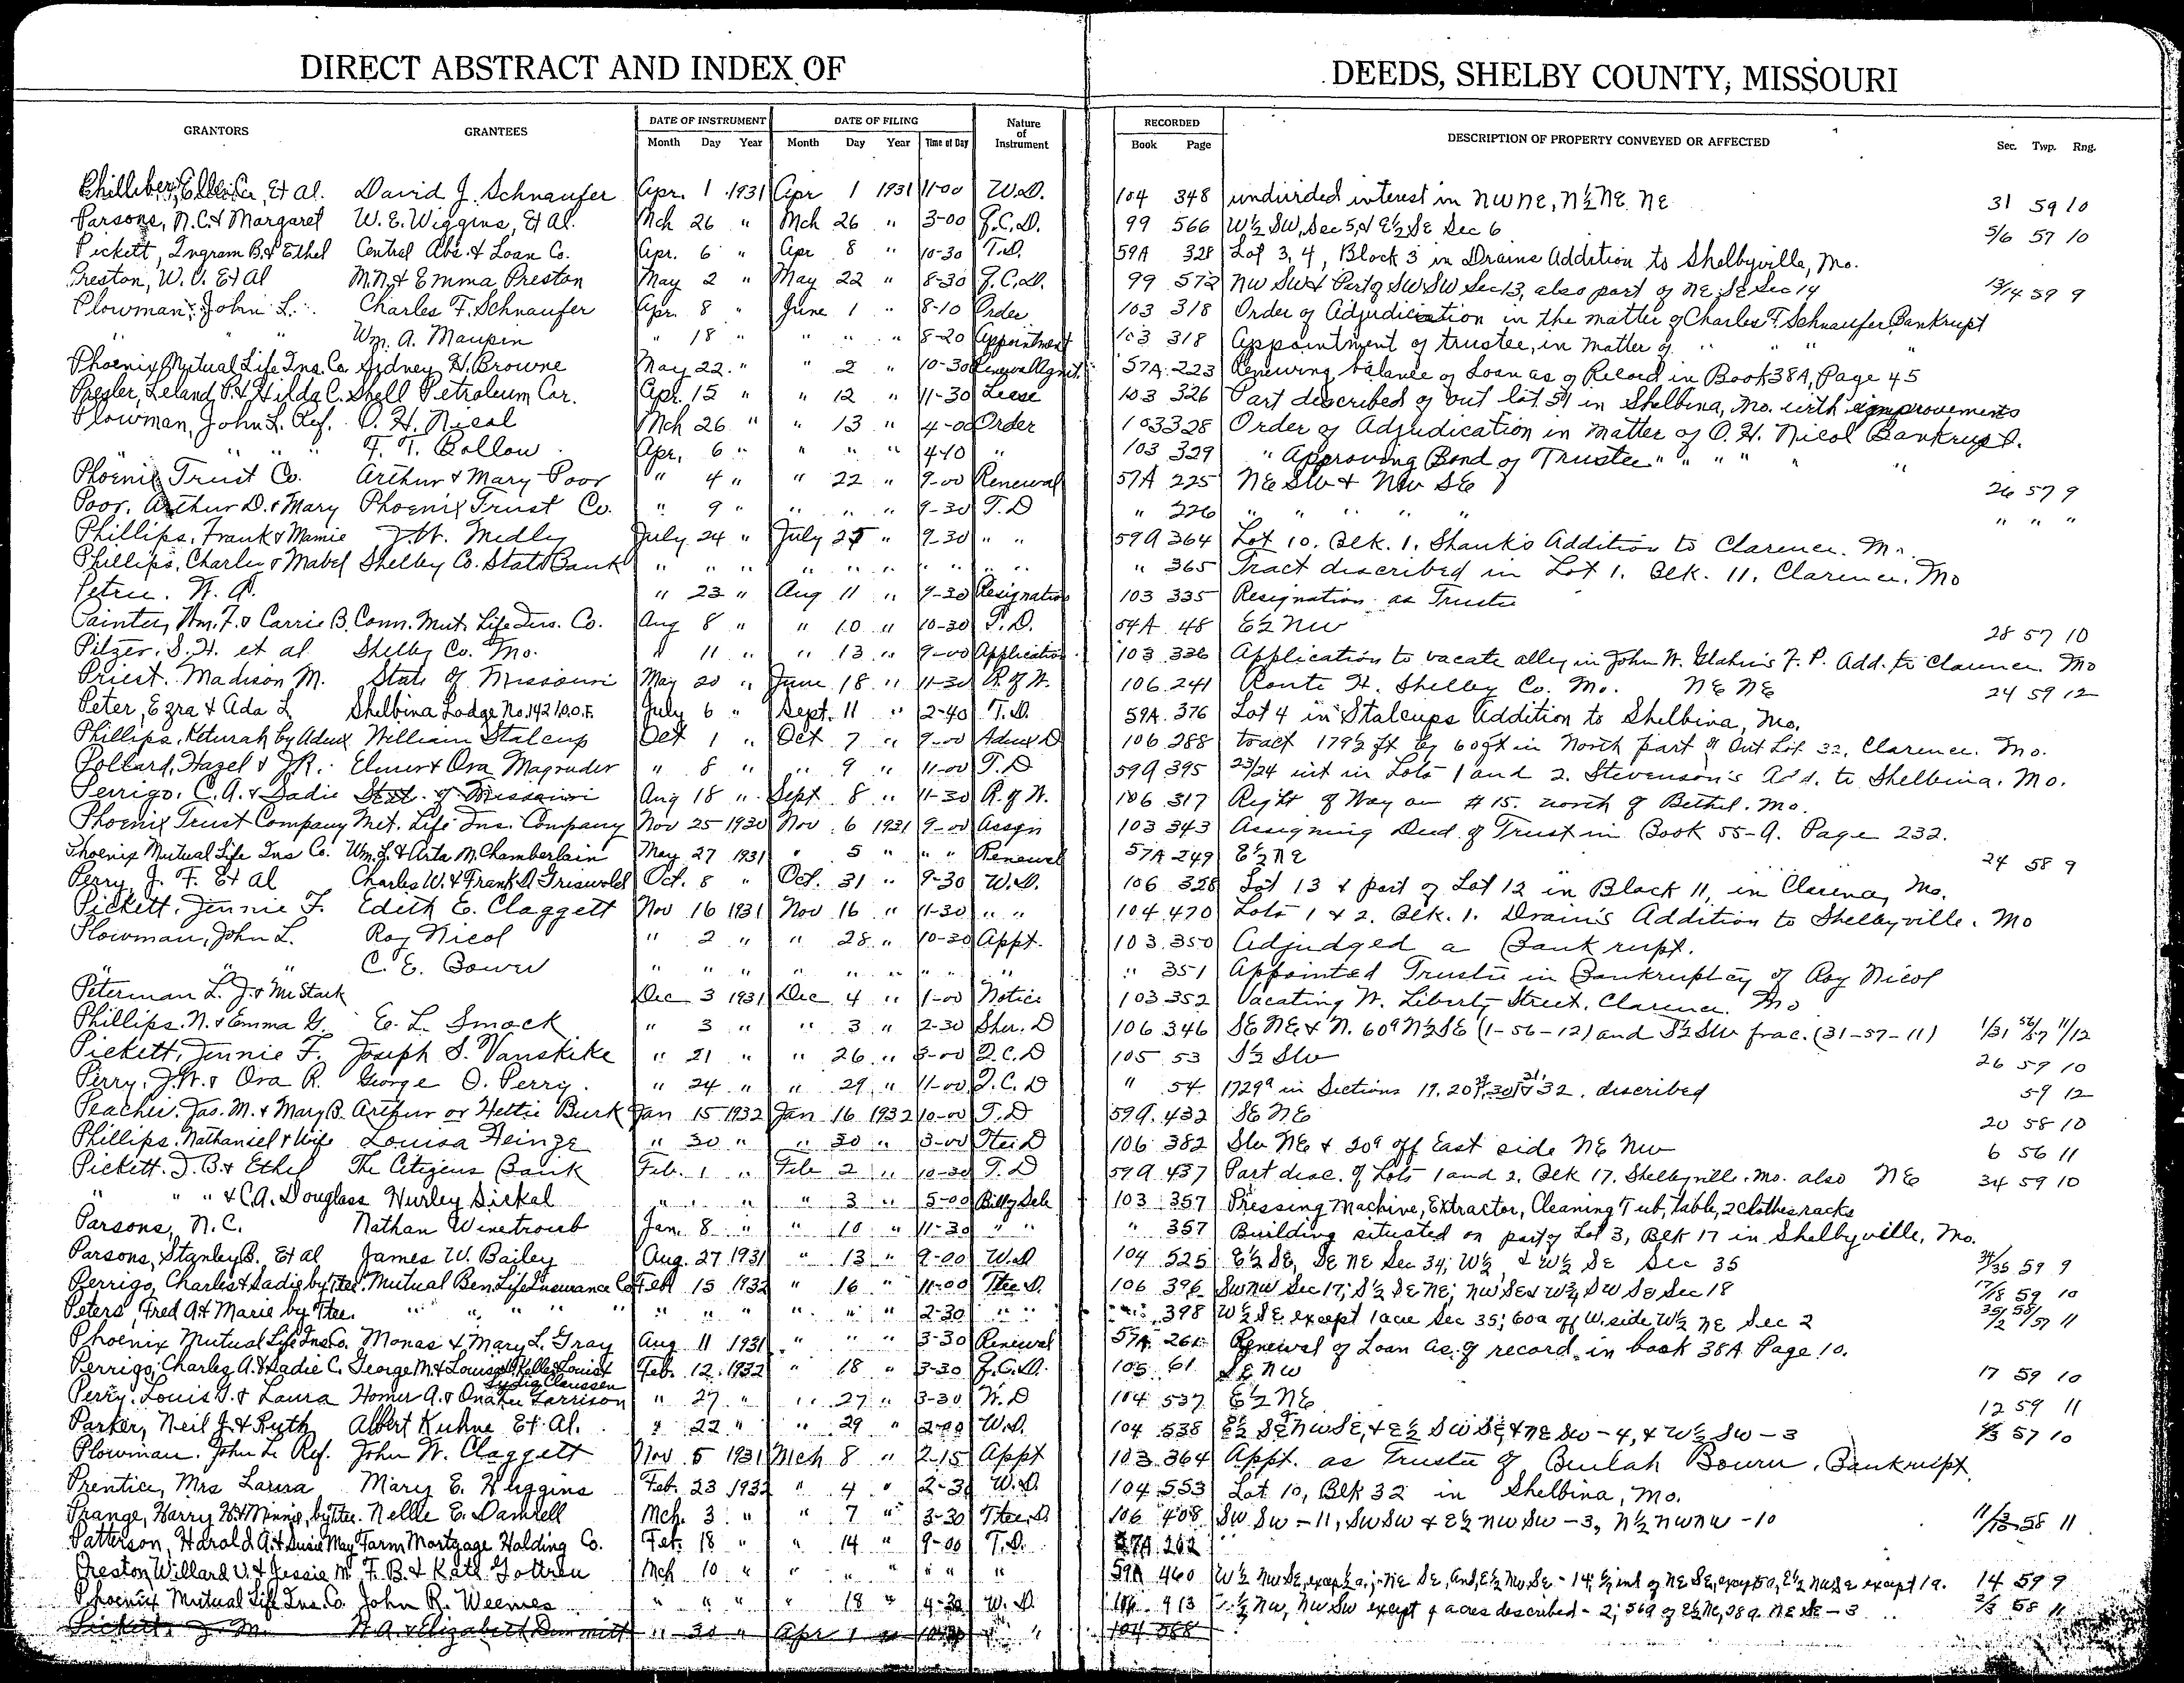 DIRECT ABSTRACT AND INDEX OF DEEDS, SHELBY COUNTY, MISSOURI
GRANTORS GRANTEES DATE OF INSTRUMENT DATE OF FILING Nature of Instrument RECORDED DESCRIPTION OF PROPERTY CONVEYED OR AFFECTED
Month Day Year Month Day Year Time of Day Book Page Sec. Twp. Rng.
Et Al. David J. Schnaufer Apr. 1 1931 Apr 1 1931 11-00 W.D. 104 348 undivided interest in NWNE, N½ NE NE 31 59 10
Parsons, N.C. & Margaret W. E. Wiggins, Et Al. Mch 26 " Mch 26 " 3-00 Q.C.D. 99 566 W½ SW, Sec 5, & E½ SE Sec 6 5/6 57 10
Pickett, Ingram B. & Ethel Central Abs. & Loan Co. Apr. 6 " Apr 8 " 10-30 T.D. 59A 328 Lot 3, 4, Block 3 in Drains Addition to Shelbyville, Mo.
Preston, W. V. Et Al M.N. & Emma Preston May 2 " May 22 " 8-30 Q.C.D. 99 572 NW SW & Part of SW SW Sec 13, also part of NE SE Sec 14 13/14 59 9
Plowman, John L. Charles F. Schnaufer Apr. 8 " June 1 " 8-10 Order 103 318 Order of Adjudication in the matter of Charles F. Schnaufer, Bankrupt
" " Wm. A. Maupin " 18 " " " " 8-20 Appointment 103 318 Appointment of trustee, in matter of " " "
Phoenix Mutual Life Ins. Co. Sydney H. Browne May 22 " " 2 " 10-30 Renewal Agmt. 57A 223 Renewing balance of Loan as of Record in Book 38A, Page 45
Presler, Leland P. & Hilda C. Shell Petroleum Cor. Apr. 15 " " 12 " 11-30 Lease 103 326 Part described of out lot 51 in Shelbina, Mo. with improvements
Plowman, John L. Ref. O. H. Nicol Mch 26 " " 13 " 4-00 Order 103 328 Order of Adjudication in matter of O. H. Nicol Bankrupt.
" " " F. T. Bollow Apr. 6 " " " " 4-10 " 103 329 " Approving Bond of Trustee " " " " "
Phoenix Trust Co. Arthur & Mary Poor " 4 " " 22 " 9-00 Renewal 57A 225 NE SW & NW SE 26 57 9
Poor, Arthur D. & Mary Phoenix Trust Co. " 9 " " " " 9-30 T.D " 226 " " " " " " " "
Phillips, Frank & Mamie J.W. Medley July 24 " July 25 " 9-30 " " 59A 364 Lot 10. Blk. 1. Shank's Addition to Clarence. Mo.
Phillips, Charley & Mabel Shelby Co. State Bank " " " " " " " " " " 365 Tract described in Lot 1. Blk. 11. Clarence, Mo
Petree. N. A. " 23 " Aug 11 " 9-30 Resignation 103 335 Resignation as Trustee
Painter, Wm. F. & Carrie B. Conn. Mut. Life Ins. Co. Aug 8 " " 10 " 10-30 T.D. 54A 48 E½ NW 28 57 10
Pilzer. S. H. et al Shelby Co. Mo. " 11 " " 13 " 9-00 Application 103 336 Application to vacate alley in John W. F. P. Add. to Clarence. Mo
Priest. Madison M. State of Missouri May 20 " June 18 " 11-30 R. of W. 106 241 Route H. Shelby Co. Mo. NE NE 24 59 12
Peter, Ezra & Ada L Shelbina Lodge No. 142 I.O.O.F. July 6 " Sept. 11 " 2-40 T.D. 59A 376 Lot 4 in Stalcups Addition to Shelbina, Mo.
Phillips, Keturah by Admx William Stalcup Oct 1 " Oct 7 " 9-00 Admx D 106 288 tract 179½ ft by 60 ft in North part of Out Lot 32. Clarence. Mo.
Pollard, Hazel & J.R. Elmer & Ora Magruder " 8 " " 9 " 11-00 T.D 59A 395 23/24 int in Lots 1 and 2. Stevenson's Add. to Shelbina. Mo.
Perrigo. C. A. & Sadie State of Missouri Aug 18 " Sept 8 " 11-30 R. of W. 106 317 Right of Way on #15. north of Bethel. Mo.
Phoenix Trust Company Met. Life Ins. Company Nov 25 1930 Nov. 6 1931 9-00 Assgn 103 343 Assigning Deed of Trust in Book 55-A. Page 232.
Phoenix Mutual Life Ins Co. Wm. L. & Arta M. Chamberlain May 27 1931 " 5 " " " Renewal 57A 249 E½ NE 24 58 9
Perry, J. F. Et Al Charles W. & Frank A. Griswold Oct. 8 " Oct. 31 " 9-30 W.D. 106 328 Lot 13 & part of Lot 12 in Block 11, in Clarence, Mo.
Pickett, Jennie F. Edith E. Claggett Nov 16 1931 Nov 16 " 11-30 " " 104 470 Lots 1 & 2. Blk. 1. Drain's Addition to Shelbyville. Mo
Plowman, John L. Roy Nicol " 2 " " 28 " 10-30 Appt. 103 350 Adjudged a Bankrupt.
" " " C. E. Bower " " " " " " " " " " 351 Appointed Trustee in Bankruptcy of Roy Nicol
Peterman L. J. & Stark Dec 3 1931 Dec 4 " 1-00 Notice 103 352 Vacating W. Liberty Street, Clarence. Mo
Phillips. N. & Emma G. E. L. Smock " 3 " " 3 " 2-30 Sher. D 106 346 SE NE & N. 60a N½ SE (1-56-12) and S½ SW frac. (31-57-11) 1/31 56/57 11/12
Pickett, Jennie F. Joseph S. Vanskike " 21 " " 26 " 3-00 Q.C.D 105 53 S½ SW 26 59 10
Perry, J.W. & Ora R. George O. Perry. " 24 " " 29 " 11-00 Q.C.D " 54 1729a in Sections 19. 20, 32. described 59 12
Peacher. Jas. M. & Mary B. Arthur or Hettie Burk Jan 15 1932 Jan 16 1932 10-00 T.D 59A 432 SE NE 20 58 10
Phillips. Nathaniel & Wife Louisa Heinze " 30 " " 30 " 3-00 Tee D 106 382 SW NE & 20a off East side NE NW 6 56 11
Pickett. I. B. & Ethel The Citizens Bank Feb. 1 " Feb 2 " 10-30 T.D 59A 437 Part desc. of Lots 1 and 2. Blk 17. Shelbyville. Mo. also NE 34 59 10
" " " & C.A. Douglass Hurley Sickal " " " " 3 " 5-00 Bill of Sale 103 357 Pressing Machine, Extractor, Cleaning Tub, table, 2 clothes racks
Parsons, N.C. Nathan Winetroub Jan. 8 " " 10 " 11-30 " " " 357 Building situated on part of Lot 3, Blk 17 in Shelbyville, Mo.
Parsons, Stanley B. Et al James W. Bailey Aug. 27 1931 " 13 " 9-00 W.D 104 525 E½ SE, SE NE Sec 34, W½, & W½ SE Sec 35 34/35 59 9
Perrigo, Charles & Sadie by Ttee. Mutual Ben. Life Insurance Co Feb 15 1932 " 16 " 11-00 Ttee D. 106 396 SW NW Sec 17; S½ SE NE; NW SE & W¾ SW SE Sec 18 17/18 59 10
Peters, Fred A. & Marie by Ttee. " " " " " " " " " " " 2-30 " " " 398 W½ SE except 1 acre Sec 35; 60a off W. side W½ NE Sec 2 35/2 58/57 11
Phoenix Mutual Life Ins. Co. Monas & Mary L. Gray Aug 11 1931 " " " 3-30 Renewal 57A 261 Renewal of Loan as of record in book 38A Page 10.
Perrigo, Charles A. & Sadie C. George M. & Louise Feb. 12 1932 " 18 " 3-30 Q.C.D. 105 61 SE NW 17 59 10
Lydia Claussen
Perry. Louis T. & Laura Homer A. & Garrison " 27 " " 27 " 3-30 W.D 104 537 E½ NE 12 59 11
Parker, Neil J. & Ruth Albert Kuhne Et Al. " 22 " " 29 " 2-00 W.D. 104 538 E½ SE NW SE, & E½ SW SE, & NE SW - 4, & W½ SW - 3 4/3 57 10
Plowman. John L. Ref. John W. Claggett Nov 5 1931 Mch 8 " 2-15 Appt 103 364 Appt. as Trustee of Beulah Bourn. Bankrupt
Prentice, Mrs Laura Mary E. Huggins Feb. 23 1932 " 4 " 2-30 W.D. 104 553 Lot 10, Blk 32 in Shelbina, Mo.
Prange, Harry H. & Minnie, by Ttee. Nellie E. Damrell Mch. 3 " " 7 " 3-30 Ttee. D. 106 408 SW SW - 11, SW SW & E½ NW SW - 3, N½ NW NW - 10 58 11
Patterson, Harold A. & Susie May Farm Mortgage Holding Co. Feb. 18 " " 14 " 9-00 T.D. 57A 262
Preston, Willard V. & Jessie M. F. B. & Katl. Gottreu Mch 10 " " " " " " " 59A 460 W½ NW SE, except a; NE SE, and E½ NW SE - 14; ½ int of NE SE, except 5a, E½ NW SE except 1a. 14 59 9
Phoenix Mutual Life Ins. Co. John R. Weemes " " " " 18 " 4-30 W.D. 106 413 ½ NW, NW SW except 4 acres described - 2; 56a of E½ NE, 38a. NE SE - 3 2/3 58 11
Pickett, J. M. N. A. & Elizabeth Dimmitt " 30 " Apr 1 " 10-30 " " 104 588